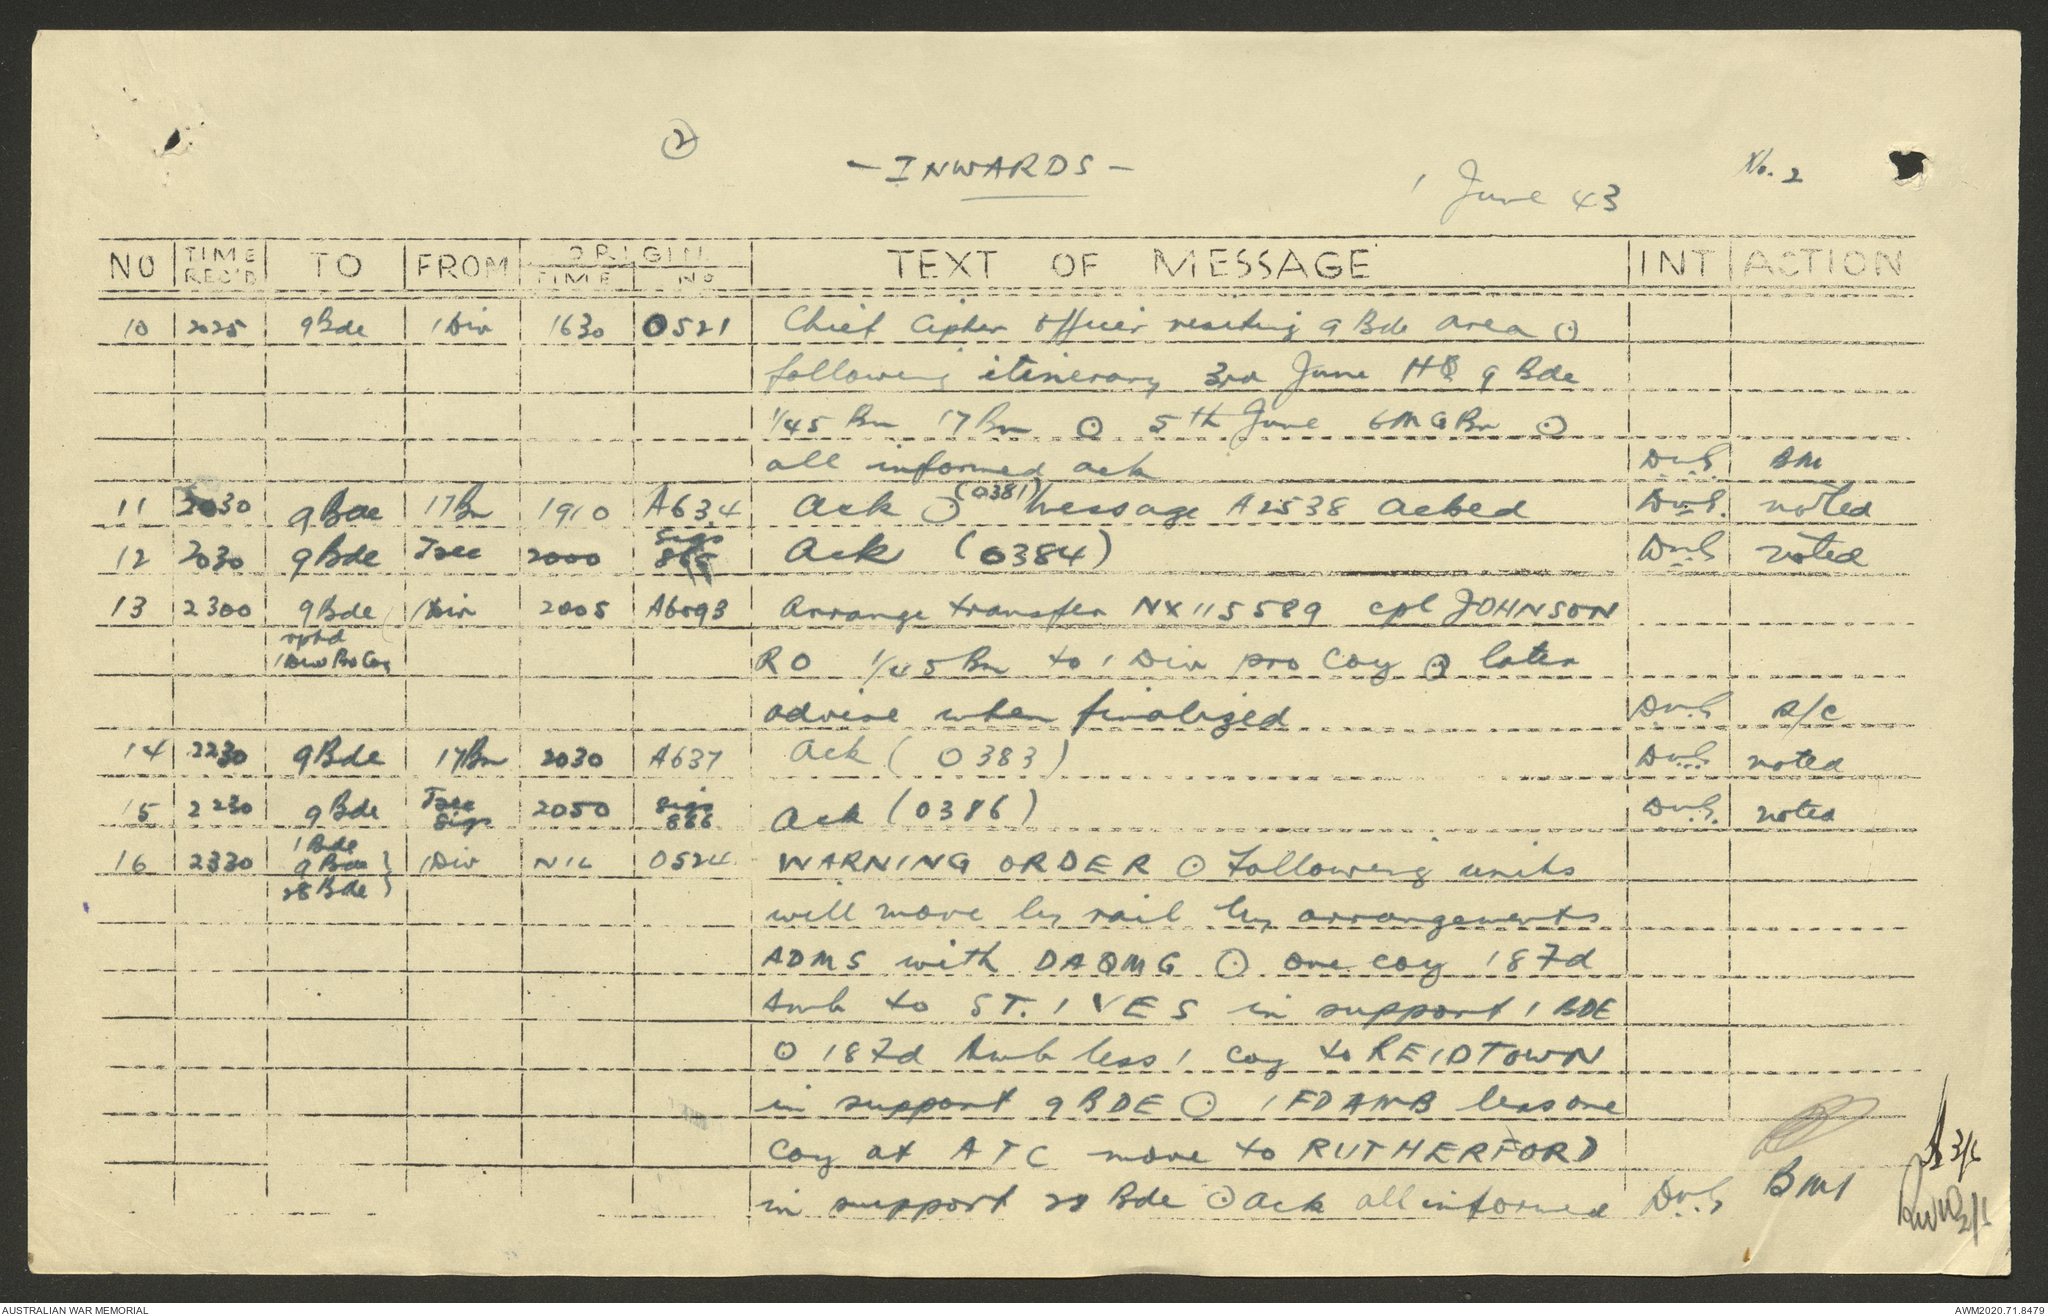 2
- INWARDS -
1 June 43
No. 2
NO TIME REC'D TO FROM ORIGIN TIME NO TEXT OF MESSAGE INT ACTION
10 2025 9 Bde 1 Div 1630 0521 Chief Cipher Officer visiting 9 Bde area ⊙
following itinerary 3rd June HQ 9 Bde
1/45 Bn 17 Bn ⊙ 5th June 6 MG Bn ⊙
all informed ack BM
11 2030 9 Bde 17 Bn 1910 A634 Ack ⊙ (0381) Message A2538 acked noted
12 2030 9 Bde 2000 Sigs Ack (0384) noted
13 2300 9 Bde 1 Div 2005 A6093 Arrange transfer NX115589 Cpl JOHNSON
rptd
1 Div Pro Coy RO 1/45 Bn to 1 Div pro Coy ⊙ later
advise when finalized S/C
14 2230 9 Bde 17 Bn 2030 A637 Ack (0383) noted
15 2230 9 Bde Sigs 2050 Sigs 866 Ack (0386) noted
16 2330 1 Bde 9 Bde 28 Bde } 1 Div NIL 0524 WARNING ORDER ⊙ Following units
will move by rail by arrangements
ADMS with DAQMG ⊙ one coy 18 Fd
Amb to ST. IVES in support 1 BDE
⊙ 18 Fd Amb less 1 Coy to REIDTOWN
in support 9 BDE ⊙ 1 FD AMB less one
Coy at ATC move to RUTHERFORD
in support 28 Bde ⊙ Ack all informed BM1
3/6
AUSTRALIAN WAR MEMORIAL
AWM2020.71.8479